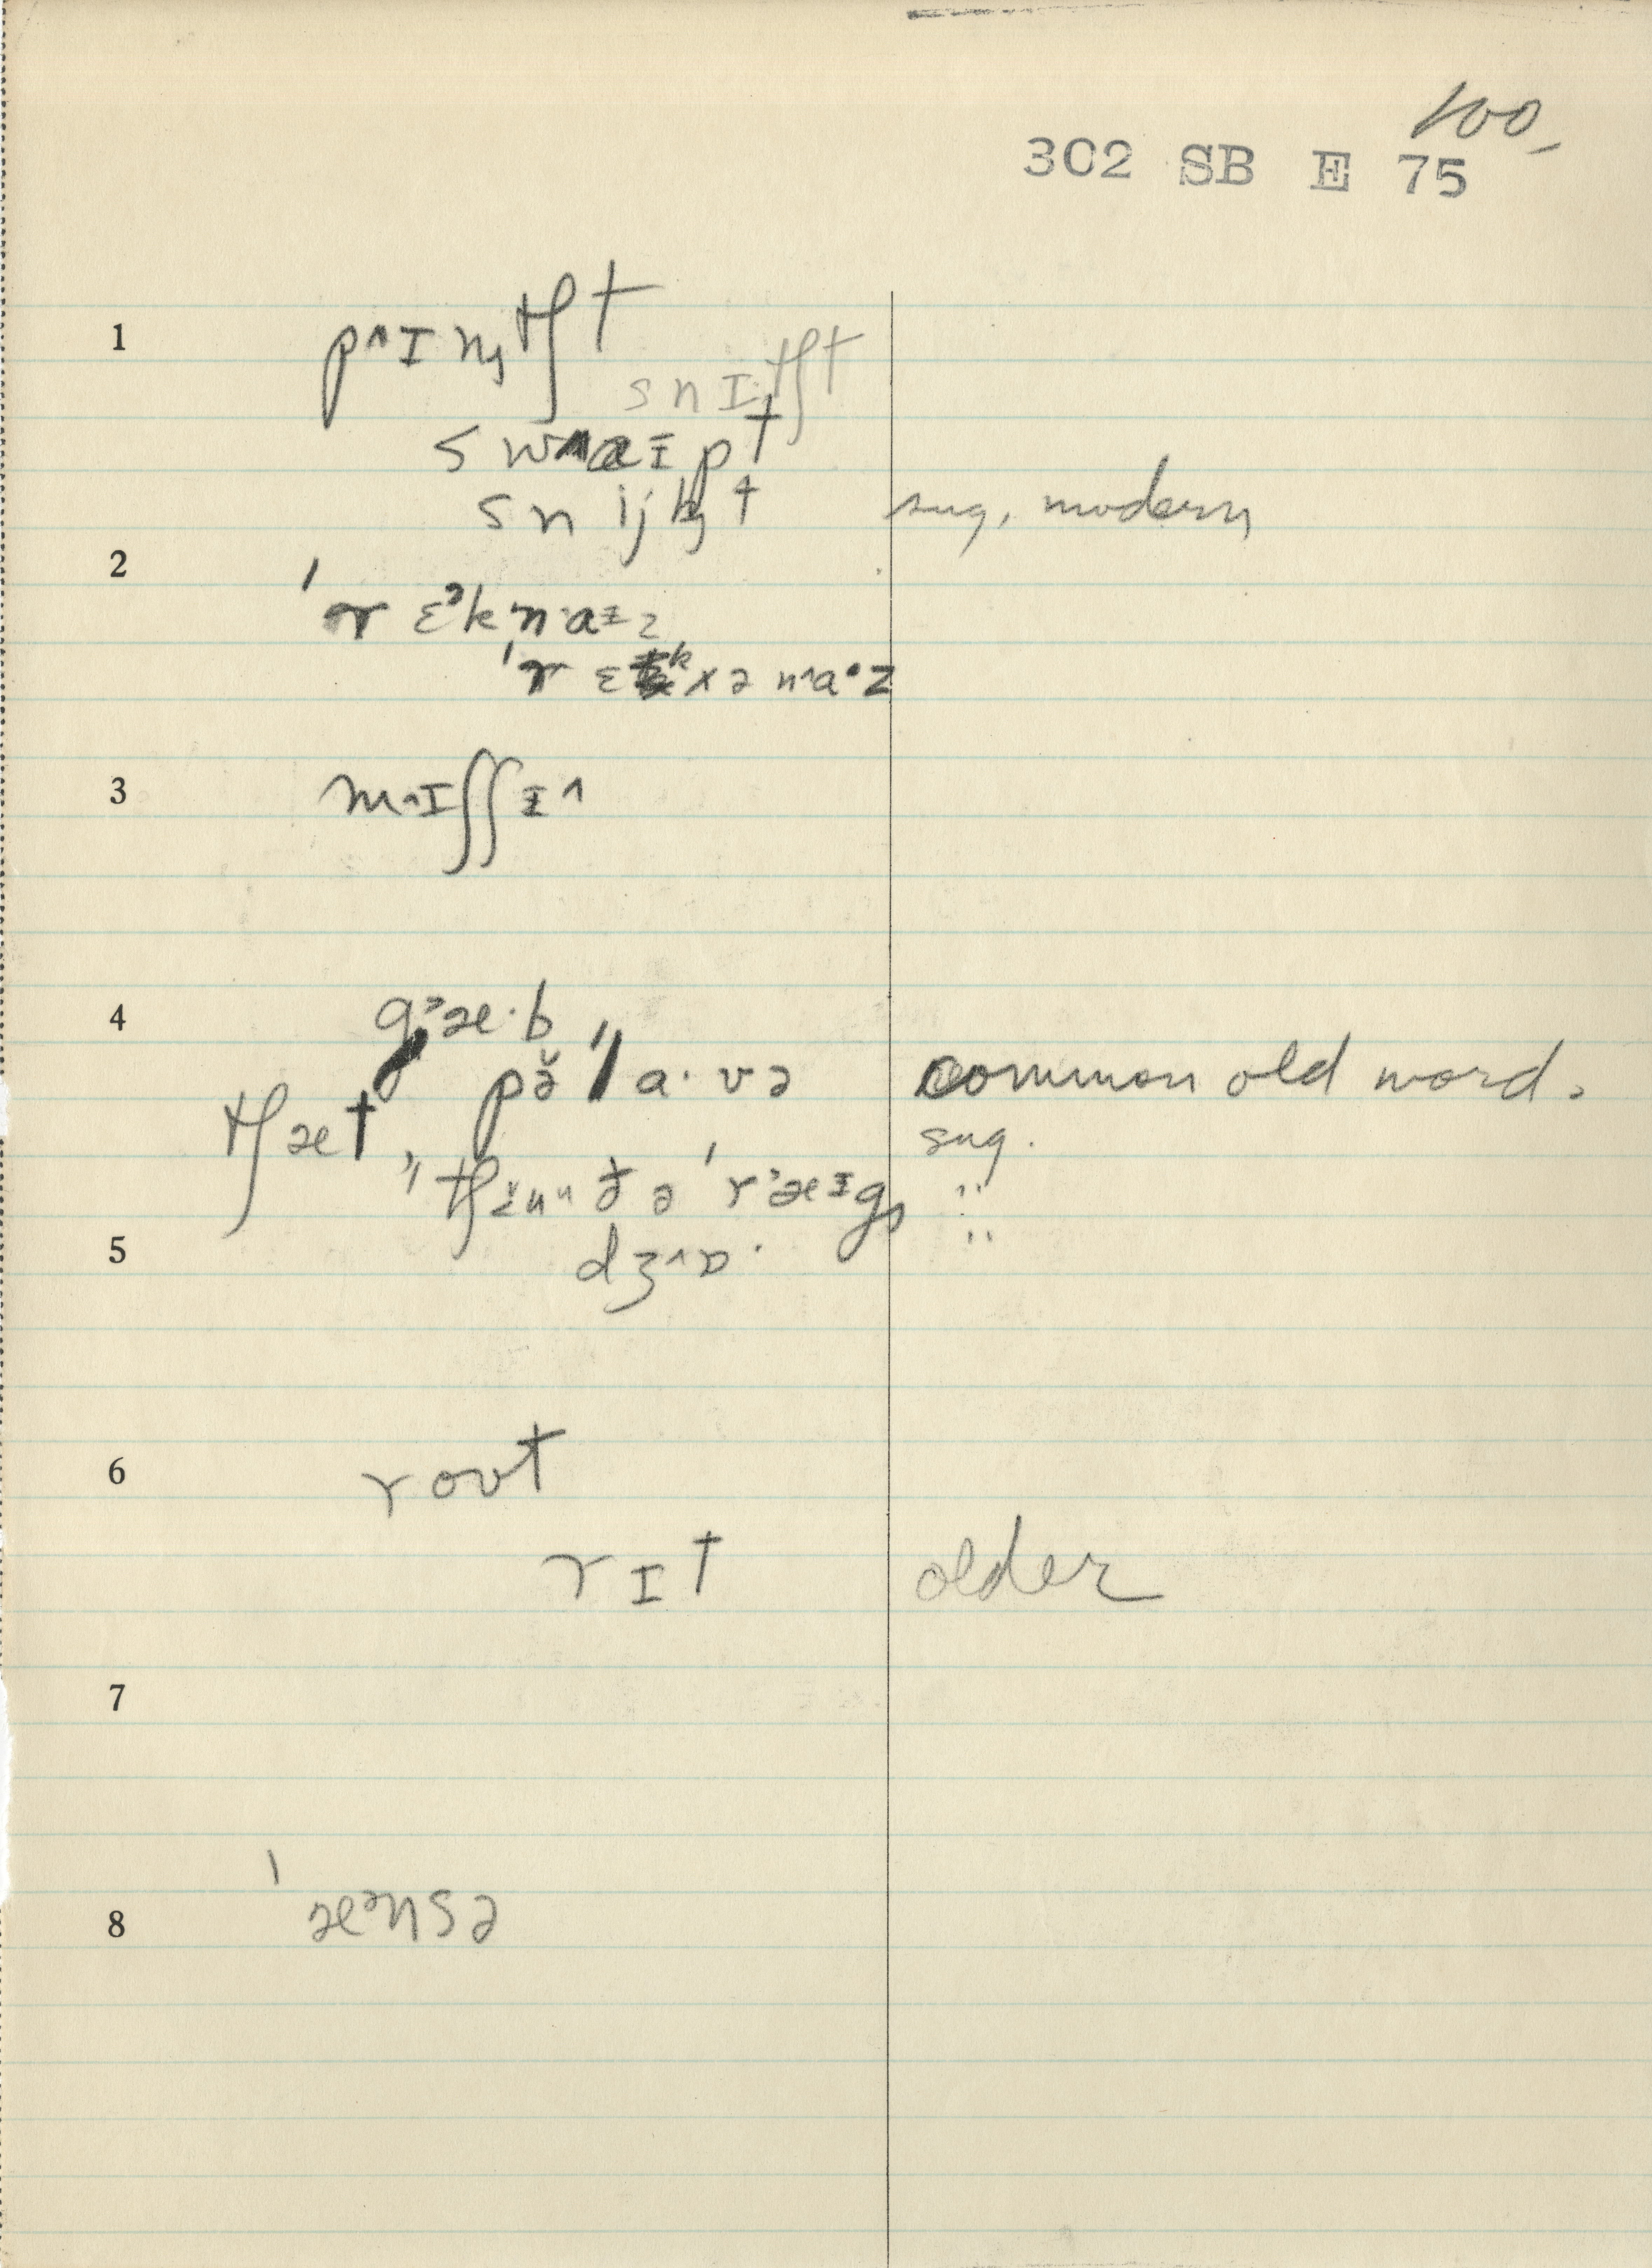 100
302 SB E 75
1 p^ɪnʧt
snɪʧt
swaɪpt
snijkt sug. modern
2 'rɛᵊknaɪz
'rɛkxəna·z
3 mɪʃʃɪ^
4 g æ·b
pə̆"la·və common old word.
ʧæt sug.
"
5 dʒ^ɒ· "
6 roʊt
rɪt older
7
8 'æᵊnsə